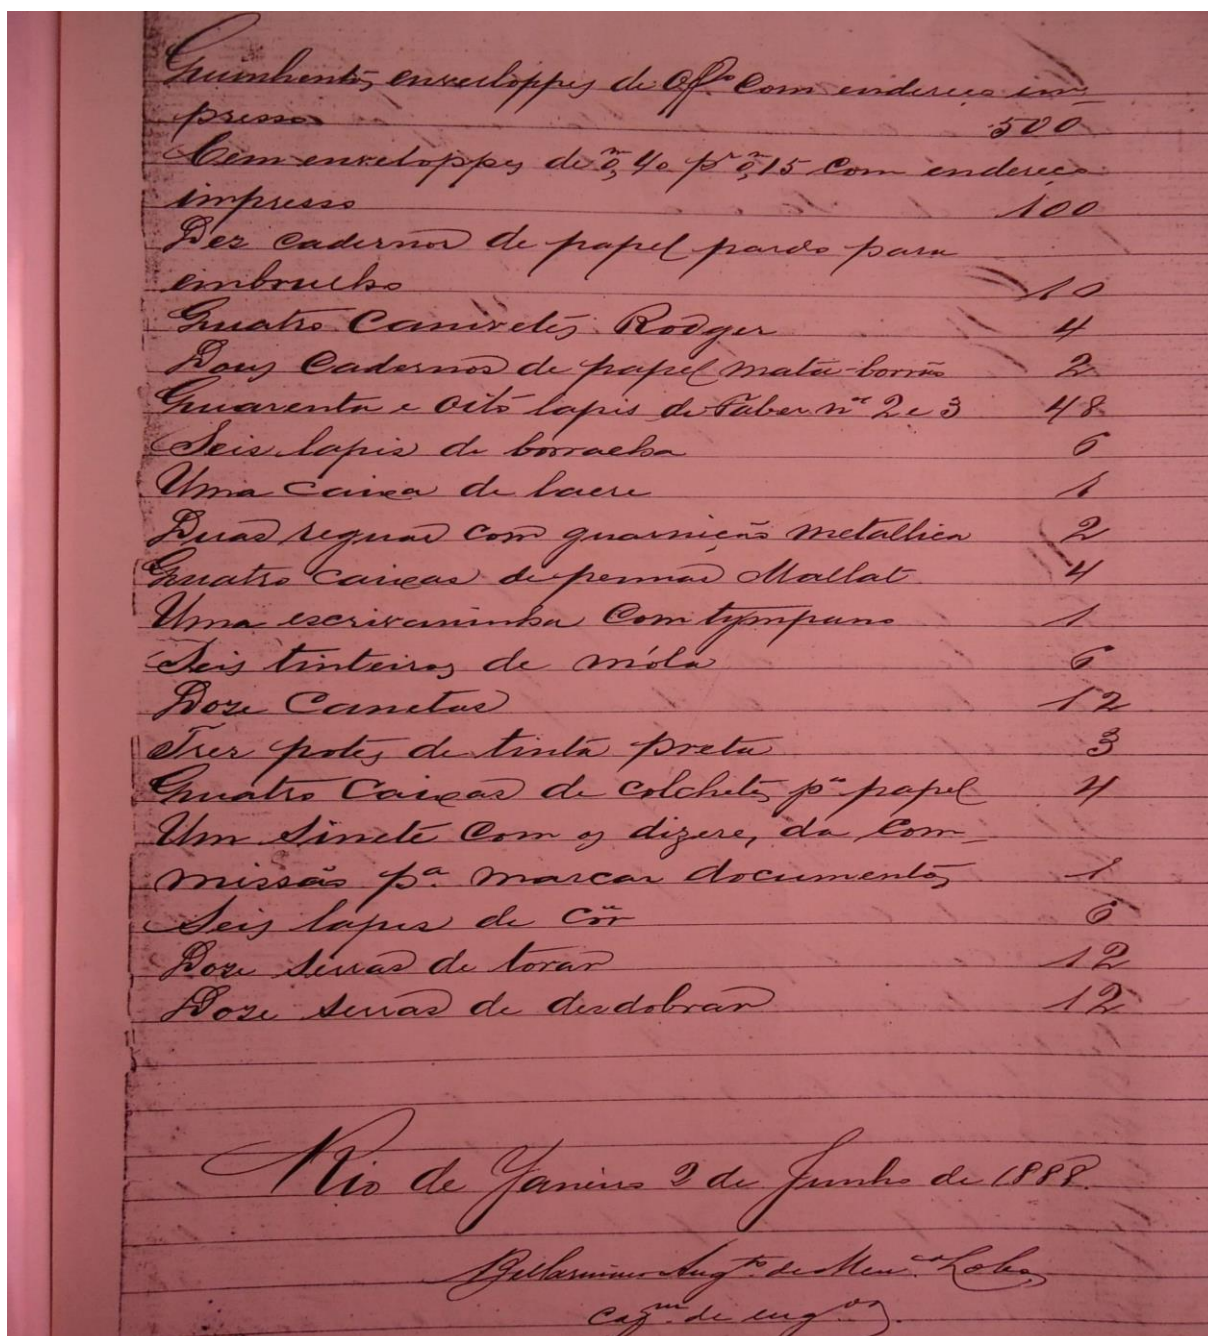 Quinhentos enveloppes de Off.º com endereço im-
presso 500
Cem enveloppes de 0,ᵐ40 pʳ 0,ᵐ15 com endereço
impresso 100
Dez cadernos de papel pardo para
embrulho 10
Quatro Canivetes Rodger 4
Dous Cadernos de papel mata-borrão 2
Quarenta e oito lapis de Faber nᵒˢ 2 e 3 48
Seis lapis de borracha 6
Uma caixa de lacre 1
Duas reguas com guarnição metallica 2
Quatro Caixas de pennas Mallat 4
Uma escrivaninha com tympano 1
Seis tinteiros de móla 6
Doze Canetas 12
Tres potes de tinta preta 3
Quatro Caixas de colchetes pª papel 4
Um Sinete com os dizeres da Com-
missão pª marcar documentos 1
Seis lapis de Côr 6
Doze serras de torar 12
Doze serras de desdobrar 12
Rio de Janeiro 2 de Junho de 1888.
Bellarmino Augᵗᵒ de Menᶜᵃ Lobo,
Capᵐ de engᵒˢ